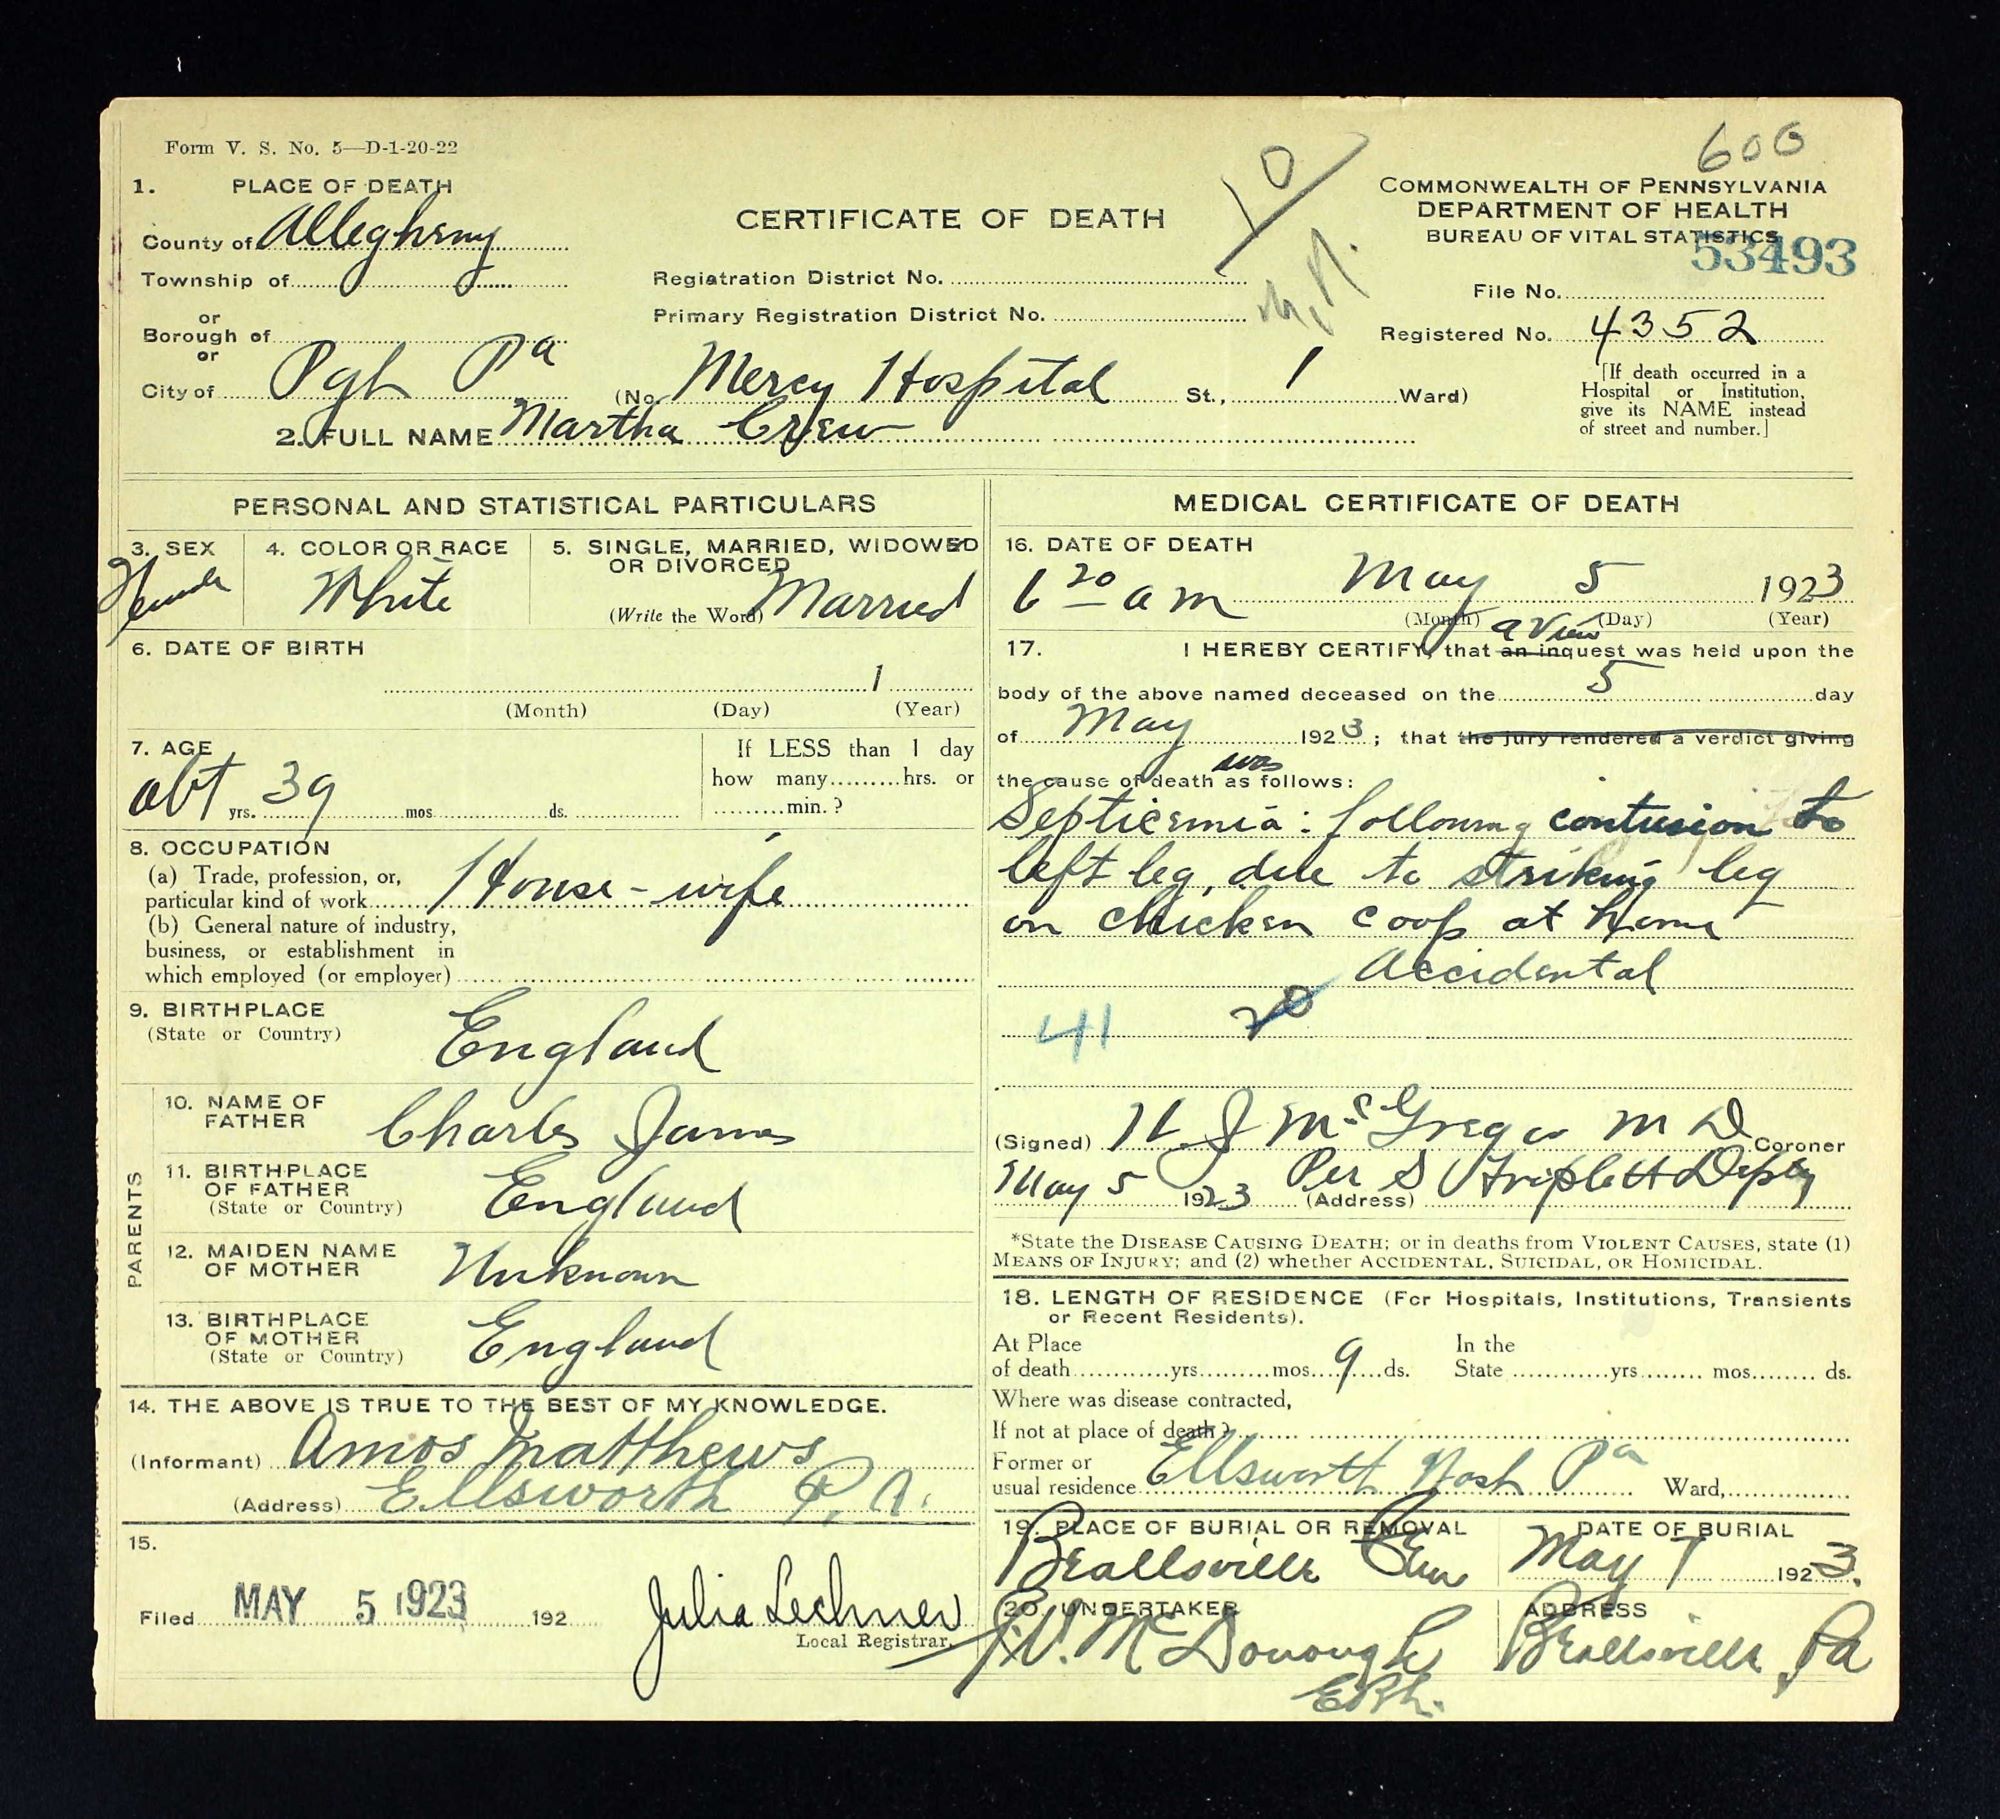 600
Form V. S. No. 5—D-1-20-22
1. PLACE OF DEATH
County of Allegheny
Township of
or
Borough of
or
City of Pgh Pa
CERTIFICATE OF DEATH
Registration District No.
Primary Registration District No.
(No. Mercy Hospital St., 1 Ward)
10
COMMONWEALTH OF PENNSYLVANIA
DEPARTMENT OF HEALTH
BUREAU OF VITAL STATISTICS
53493
File No.
Registered No. 4352
[If death occurred in a
Hospital or Institution,
give its NAME instead
of street and number.]
2. FULL NAME Martha Crew
PERSONAL AND STATISTICAL PARTICULARS
3. SEX
Female
4. COLOR OR RACE
White
5. SINGLE, MARRIED, WIDOWED
OR DIVORCED
(Write the Word) Married
6. DATE OF BIRTH
1
(Month) (Day) (Year)
7. AGE
abt yrs. 39 mos. ds.
If LESS than 1 day
how many hrs. or
min.?
8. OCCUPATION
(a) Trade, profession, or,
particular kind of work House-wife
(b) General nature of industry,
business, or establishment in
which employed (or employer)
9. BIRTHPLACE
(State or Country) England
PARENTS
10. NAME OF
FATHER Charles James
11. BIRTHPLACE
OF FATHER
(State or Country) England
12. MAIDEN NAME
OF MOTHER Unknown
13. BIRTHPLACE
OF MOTHER
(State or Country) England
14. THE ABOVE IS TRUE TO THE BEST OF MY KNOWLEDGE.
(Informant) Amos Matthews
(Address) Ellsworth P.A.
15.
Filed MAY 5 1923 192
Julia Lechner
Local Registrar.
MEDICAL CERTIFICATE OF DEATH
16. DATE OF DEATH
6 20 am May 5 1923
(Month) (Day) (Year)
a View
17. I HEREBY CERTIFY, that an inquest was held upon the
body of the above named deceased on the 5 day
of May 1923; that the jury rendered a verdict giving
was
the cause of death as follows:
Septicemia: following contusion to
left leg, due to striking leg
on chicken coop at home
Accidental
41 20
(Signed) H J McGregor M D Coroner
May 5 1923 Per S Triplett Depty
(Address)
*State the DISEASE CAUSING DEATH; or in deaths from VIOLENT CAUSES, state (1)
MEANS OF INJURY; and (2) whether ACCIDENTAL, SUICIDAL, OR HOMICIDAL.
18. LENGTH OF RESIDENCE (For Hospitals, Institutions, Transients
or Recent Residents).
At Place
of death yrs. mos. 9 ds.
In the
State yrs. mos. ds.
Where was disease contracted,
If not at place of death?
Former or
usual residence Ellsworth Wash Pa Ward,
19. PLACE OF BURIAL OR REMOVAL
Beallsville Cem
DATE OF BURIAL
May 7 1923.
20. UNDERTAKER
McDonough
ADDRESS
Beallsville, Pa